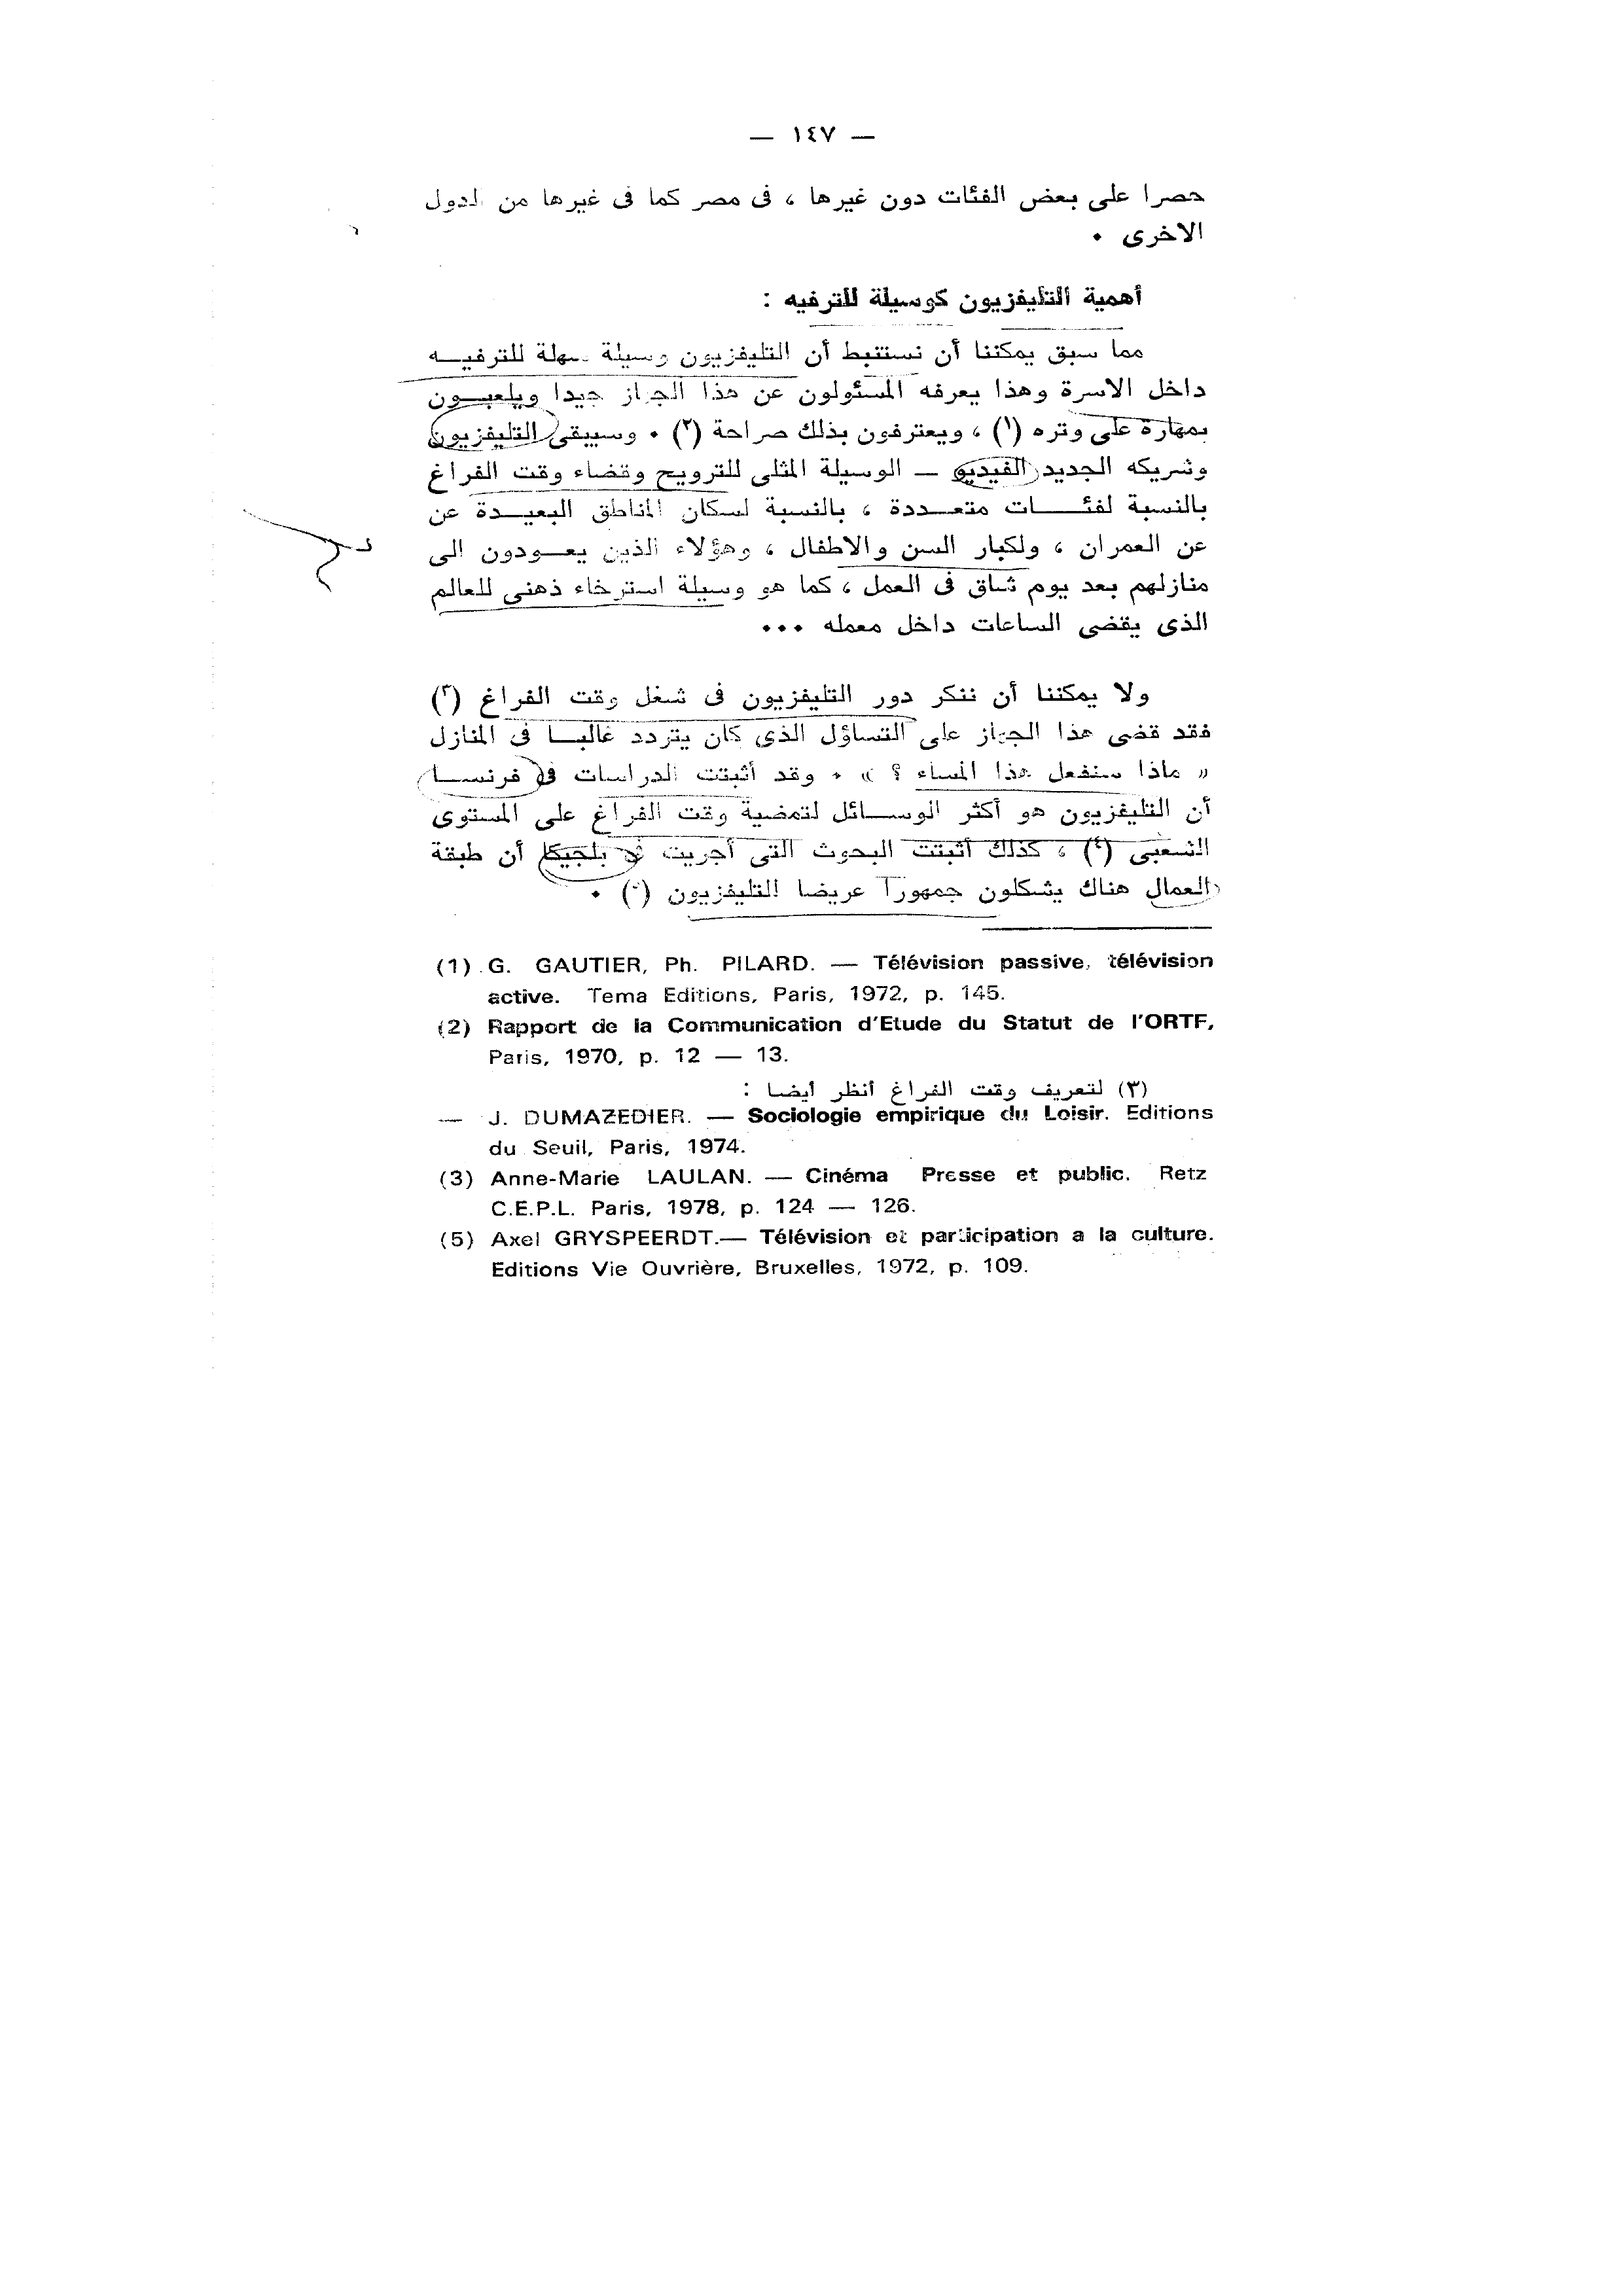 — ١٤٧ —
حصرا على بعض الفئات دون غيرها ، فى مصر كما فى غيرها من الدول
الاخرى •
أهمية التليفزيون كوسيلة للترفيه :
مما سبق يمكننا أن نستنبط أن التليفزيون وسيلة سهلة للترفيـــه
داخل الاسرة وهذا يعرفه المسئولون عن هذا الجهاز جيدا ويلعبــون
بمهارة على وتره (١) ، ويعترفون بذلك صراحة (٢) • وسيبقى التليفزيون
وشريكه الجديد الفيديو — الوسيلة المثلى للترويح وقضاء وقت الفراغ
بالنسبة لفئــــات متعــددة ، بالنسبة لسكان المناطق البعيــدة عن
عن العمران ، ولكبار السن والاطفال ، وهؤلاء الذين يعــودون الى
منازلهم بعد يوم شاق فى العمل ، كما هو وسيلة استرخاء ذهنى للعالم
الذى يقضى الساعات داخل معمله •••
ولا يمكننا أن ننكر دور التليفزيون فى شغل وقت الفراغ (٣)
فقد قضى هذا الجهاز على التساؤل الذى كان يتردد غالبــا فى المنازل
« ماذا سنفعل هذا المساء ؟ » • وقد أثبتت الدراسات فى فرنســا
أن التليفزيون هو أكثر الوســائل لتمضية وقت الفراغ على المستوى
الشعبى (٤) ، كذلك أثبتت البحوث التى أجريت فى بلجيكا أن طبقة
العمال هناك يشكلون جمهورا عريضا للتليفزيون (٥) •
(1) G. GAUTIER, Ph. PILARD. — Télévision passive, télévision
active. Tema Editions, Paris, 1972, p. 145.
(2) Rapport de la Communication d'Etude du Statut de l'ORTF,
Paris, 1970, p. 12 — 13.
(٣) لتعريف وقت الفراغ أنظر أيضا :
— J. DUMAZEDIER. — Sociologie empirique du Loisir. Editions
du Seuil, Paris, 1974.
(3) Anne-Marie LAULAN. — Cinéma Presse et public. Retz
C.E.P.L. Paris, 1978, p. 124 — 126.
(5) Axel GRYSPEERDT.— Télévision et participation a la culture.
Editions Vie Ouvrière, Bruxelles, 1972, p. 109.